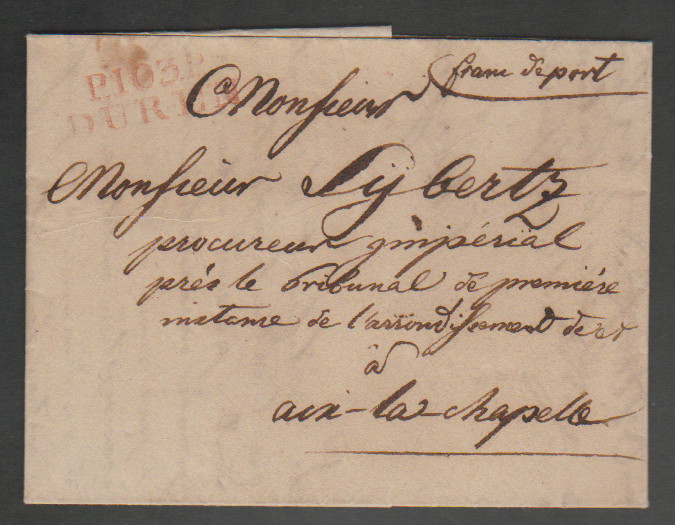 P.103.P.
DUREN
franc de port
a Monsieur
Monsieur Sÿbertz
procureur ymperial
prés le tribunal de premiére
instance de l'arrondissement de et
à
aix-la-chapelle